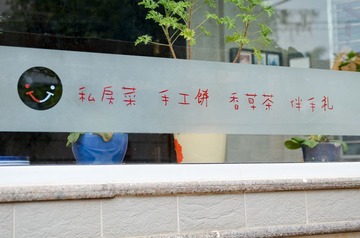 私房菜 手工餅 香草茶 伴手礼